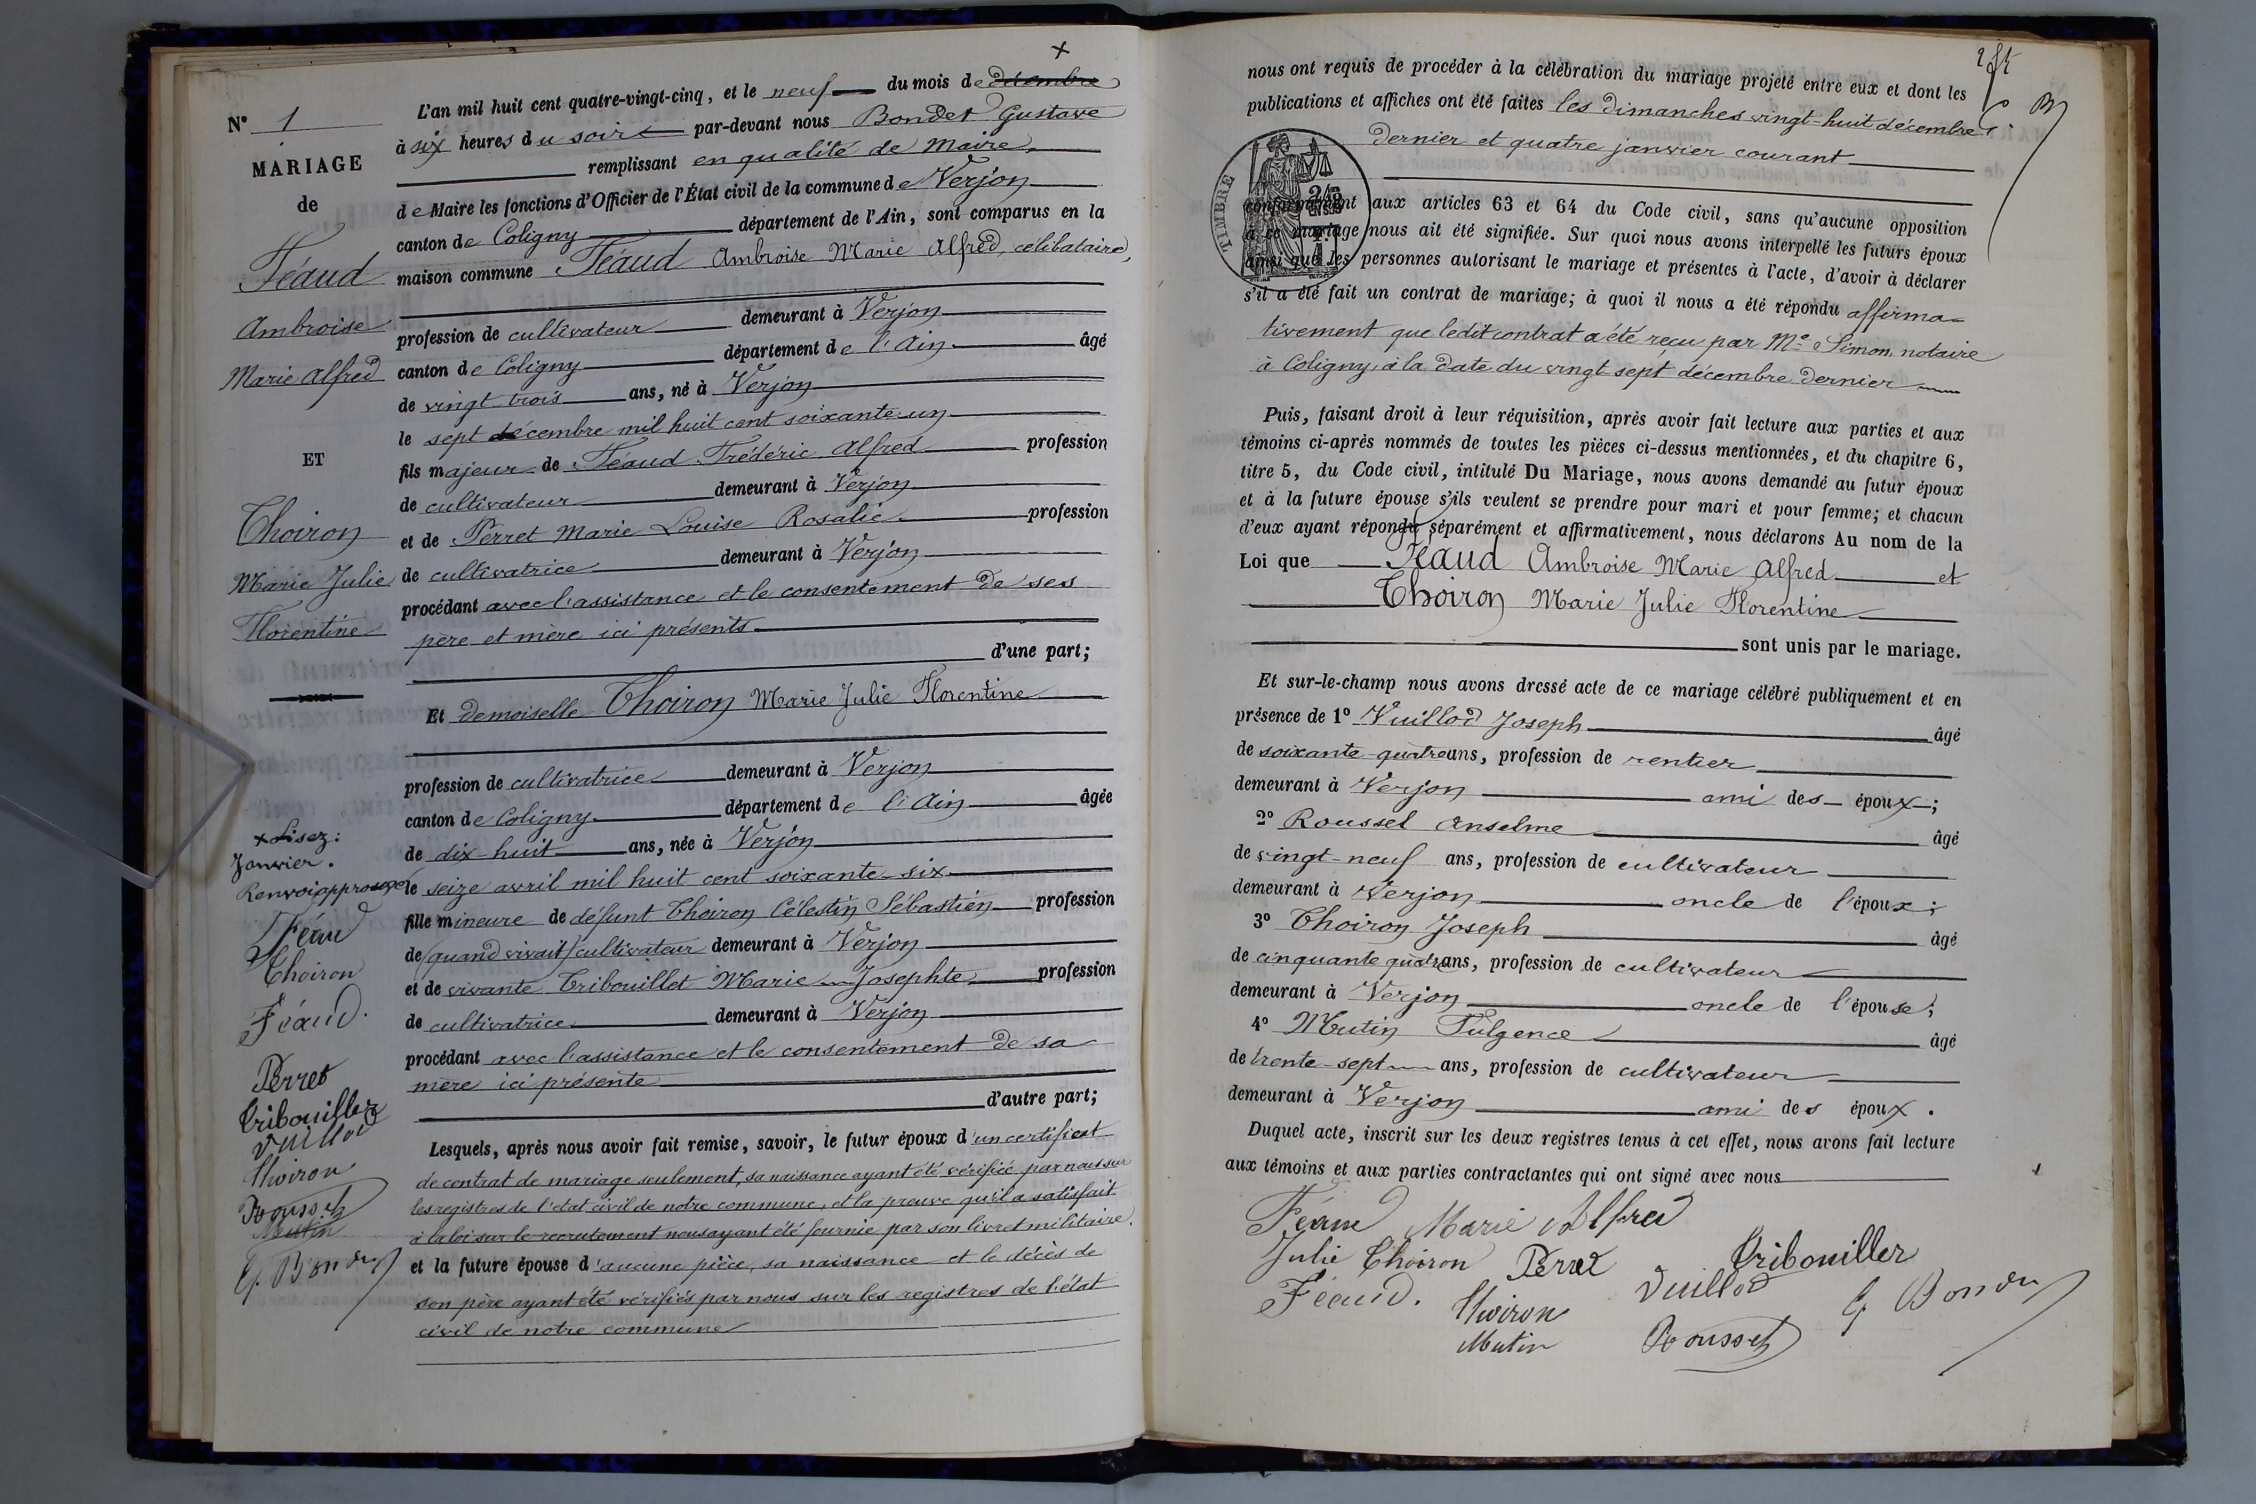 N° 1
MARIAGE
de
Féaud
Ambroise
Marie Alfred
ET
Thoiron
Marie Julie
Florentine
x Lisez :
Janvier.
Renvoi approuvé
Féau
Thoiron
Féaud.
Perret
Tribouiller
Vuillod
Thoiron
Rousset
Mutin
G. Bondet
x
L'an mil huit cent quatre-vingt-cinq, et le neuf du mois de décembre
à six heures du soir par-devant nous Bondet Gustave
remplissant en qualité de Maire
de Maire les fonctions d'Officier de l'État civil de la commune de Verjon
canton de Coligny département de l'Ain, sont comparus en la
maison commune Féaud Ambroise Marie Alfred, célibataire,
profession de cultivateur demeurant à Verjon
canton de Coligny département de l'Ain âgé
de vingt-trois ans, né à Verjon
le sept décembre mil huit cent soixante-un
fils majeur de Féaud Frédéric Alfred profession
de cultivateur demeurant à Verjon
et de Perret Marie Louise Rosalie profession
de cultivatrice demeurant à Verjon
procédant avec l'assistance et le consentement de ses
père et mère ici présents
d'une part;
Et demoiselle Thoiron Marie Julie Florentine
profession de cultivatrice demeurant à Verjon
canton de Coligny département de l'Ain âgée
de dix-huit ans, née à Verjon
le seize avril mil huit cent soixante-six
fille mineure de défunt Thoiron Célestin Sébastien profession
de (quand vivait) cultivateur demeurant à Verjon
et de vivante Tribouillet Marie Josephte profession
de cultivatrice demeurant à Verjon
procédant avec l'assistance et le consentement de sa
mère ici présente
d'autre part;
Lesquels, après nous avoir fait remise, savoir, le futur époux d'un certificat
de contrat de mariage seulement, sa naissance ayant été vérifiée par nous sur
les registres de l'état civil de notre commune, et la preuve qu'il a satisfait
à la loi sur le recrutement nous ayant été fournie par son livret militaire.
et la future épouse d'aucune pièce, sa naissance et le décès de
son père ayant été vérifiés par nous sur les registres de l'état
civil de notre commune
nous ont requis de procéder à la célébration du mariage projeté entre eux et dont les
publications et affiches ont été faites les dimanches vingt-huit décembre
dernier et quatre janvier courant
TIMBRE
conformément aux articles 63 et 64 du Code civil, sans qu'aucune opposition
à ce mariage nous ait été signifiée. Sur quoi nous avons interpellé les futurs époux
ainsi que les personnes autorisant le mariage et présentes à l'acte, d'avoir à déclarer
s'il a été fait un contrat de mariage; à quoi il nous a été répondu affirma-
tivement que ledit contrat a été reçu par Me Simon, notaire
à Coligny, à la date du vingt sept décembre dernier
Puis, faisant droit à leur réquisition, après avoir fait lecture aux parties et aux
témoins ci-après nommés de toutes les pièces ci-dessus mentionnées, et du chapitre 6,
titre 5, du Code civil, intitulé Du Mariage, nous avons demandé au futur époux
et à la future épouse s'ils veulent se prendre pour mari et pour femme; et chacun
d'eux ayant répondu séparément et affirmativement, nous déclarons Au nom de la
Loi que Féaud Ambroise Marie Alfred et
Thoiron Marie Julie Florentine
sont unis par le mariage.
Et sur-le-champ nous avons dressé acte de ce mariage célébré publiquement et en
présence de 1° Vuillod Joseph âgé
de soixante-quatre ans, profession de rentier
demeurant à Verjon ami des époux;
2° Roussel Anselme âgé
de vingt-neuf ans, profession de cultivateur
demeurant à Verjon oncle de l'époux;
3° Thoiron Joseph âgé
de cinquante quatre ans, profession de cultivateur
demeurant à Verjon oncle de l'épouse;
4° Mutin Fulgence âgé
de trente-sept ans, profession de cultivateur
demeurant à Verjon ami des époux.
Duquel acte, inscrit sur les deux registres tenus à cet effet, nous avons fait lecture
aux témoins et aux parties contractantes qui ont signé avec nous
Féaud Marie Alfred
Julie Thoiron Perret Tribouiller
Féaud. Thoiron Vuillod G Bondet
Mutin Rousset